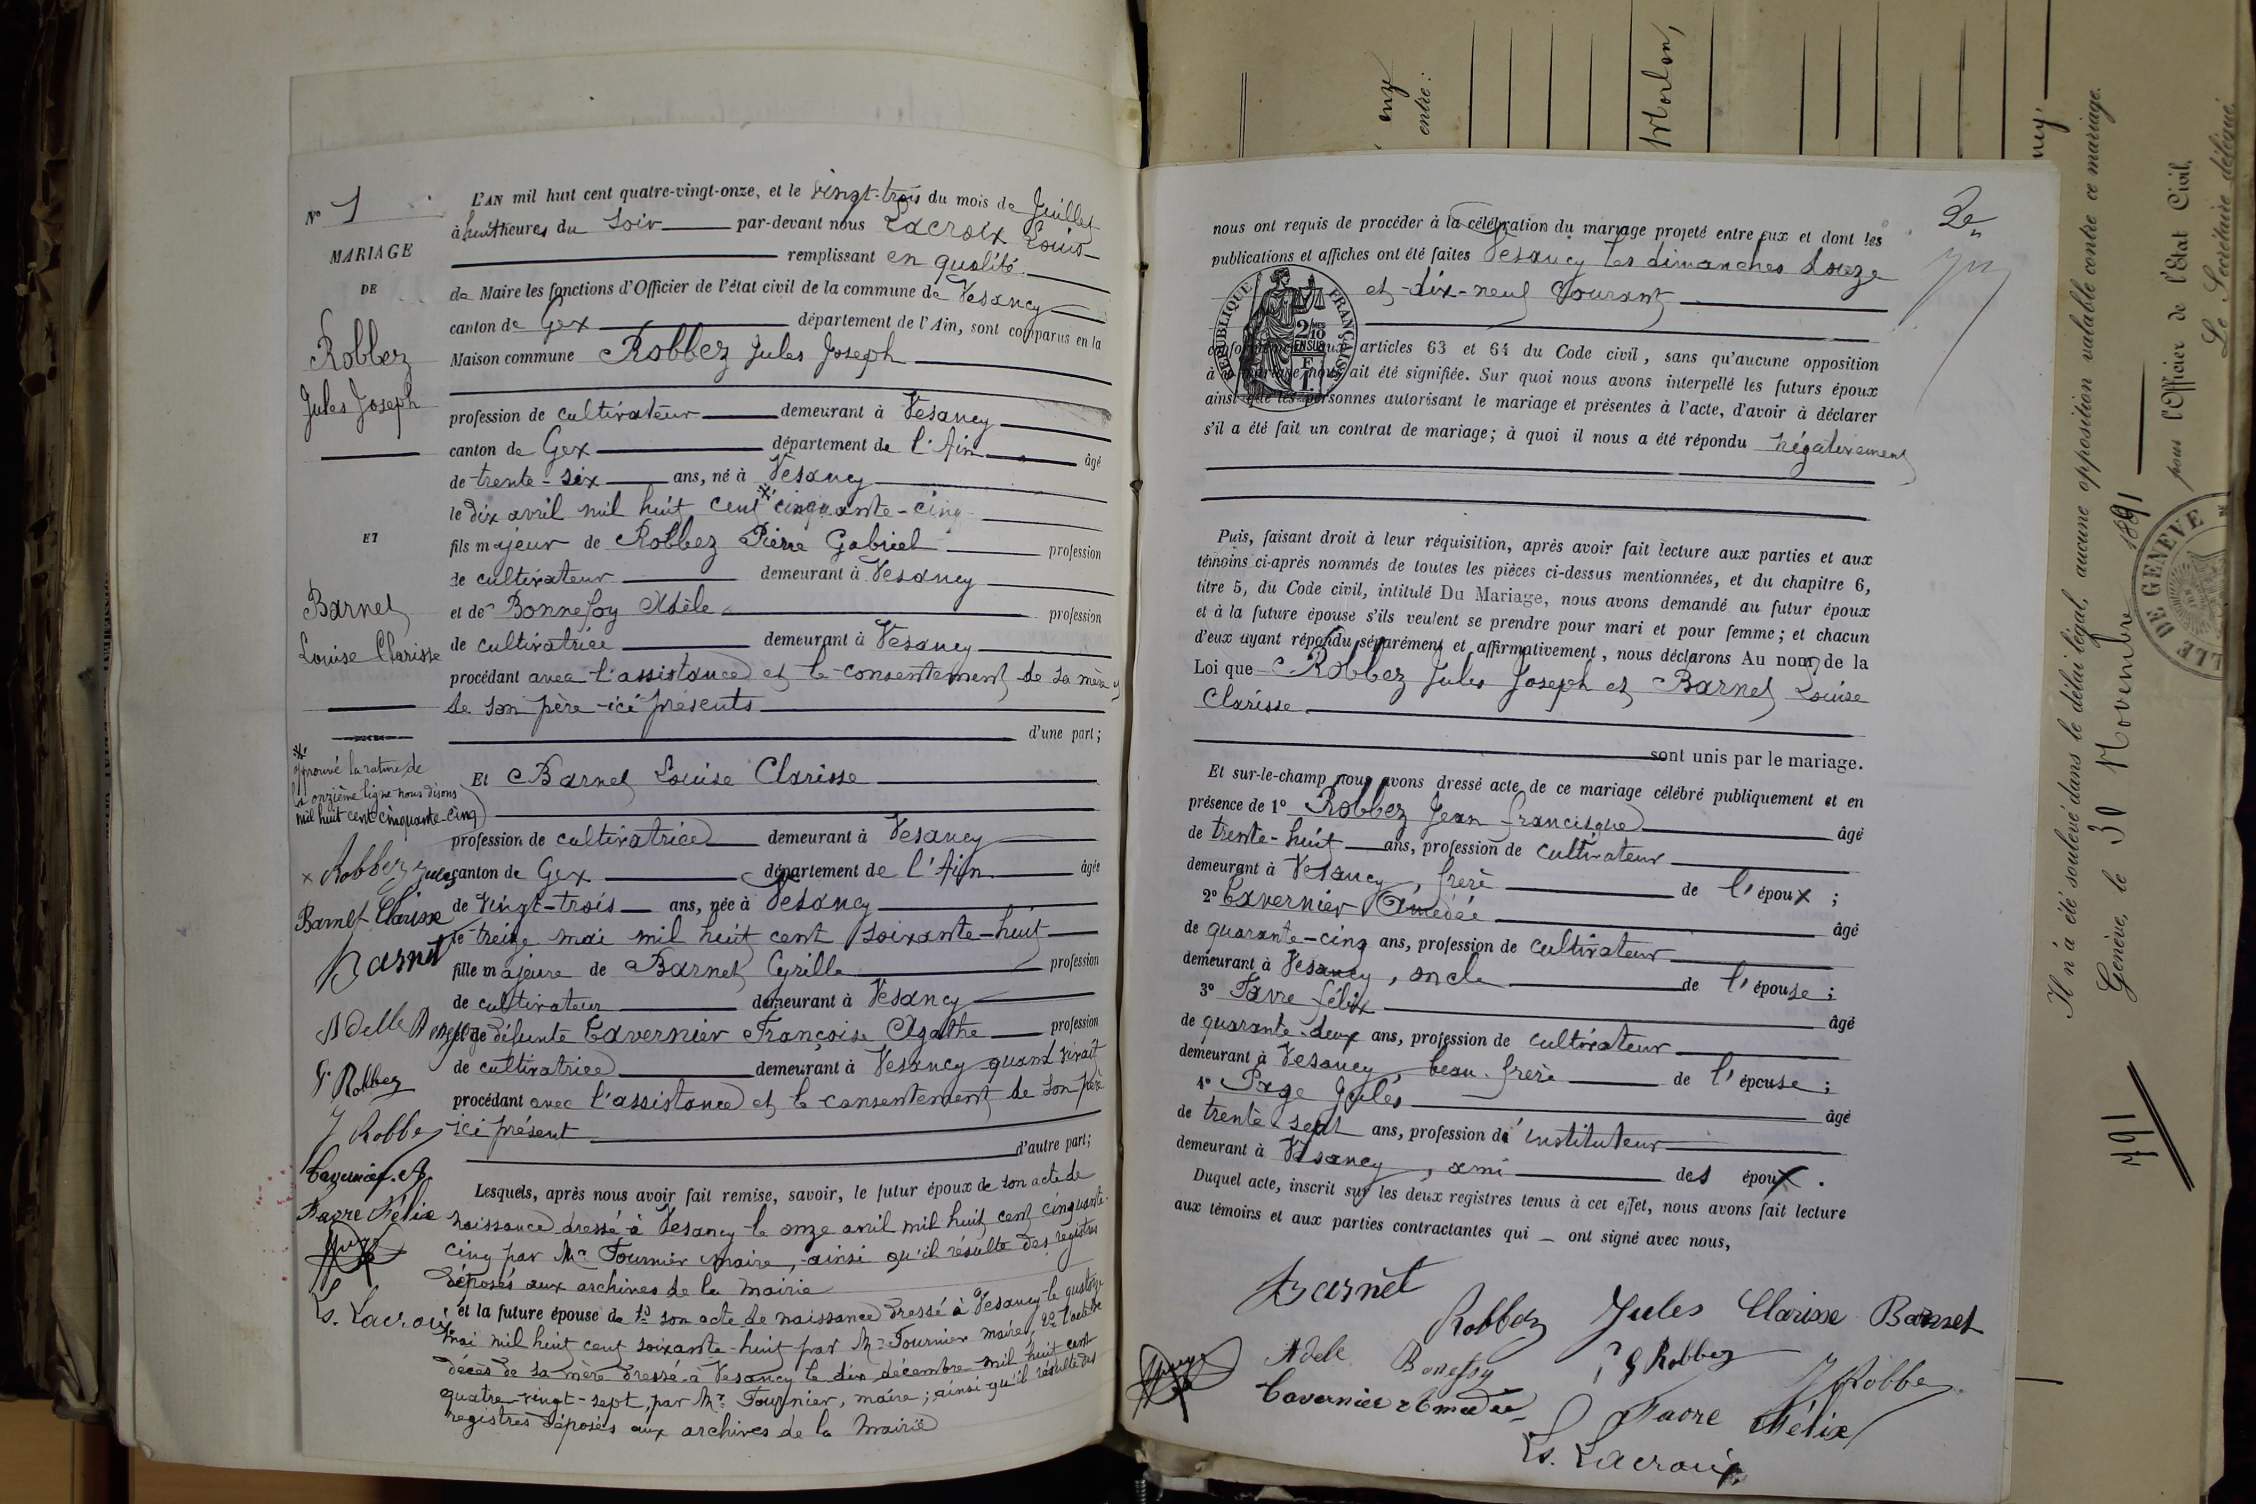 N° 1
MARIAGE
DE
Robbez
Jules Joseph
ET
Barnet
Louise Clarisse
※ approuvé la rature de
la onzième ligne nous disons
mil huit cent cinquante-cinq
× Robbez Jules
Barnet Clarisse
Barnet
Adelle
G. Robbez
J Robbez
Tavernier A
Favre Félix
Ls. Lacroix
L'AN mil huit cent quatre-vingt-onze, et le vingt-trois du mois de Juillet
à huit heures du soir par-devant nous Lacroix Louis
remplissant en qualité
de Maire les fonctions d'Officier de l'état civil de la commune de Vesancy
canton de Gex département de l'Ain, sont comparus en la
Maison commune Robbez Jules Joseph
profession de cultivateur demeurant à Vesancy
canton de Gex département de l'Ain âgé
de trente-six ans, né à Vesancy
le dix avril mil huit cent ※ cinquante-cinq
fils majeur de Robbez Pierre Gabriel profession
de cultivateur demeurant à Vesancy
et de Bonnefoy Adèle profession
de cultivatrice demeurant à Vesancy
procédant avec l'assistance et le consentement de sa mère
de son père ici présents
d'une part;
Et Barnet Louise Clarisse
profession de cultivatrice demeurant à Vesancy
canton de Gex département de l'Ain âgée
de vingt-trois ans, née à Vesancy
le treize mai mil huit cent soixante-huit
fille majeure de Barnet Cyrille profession
de cultivateur demeurant à Vesancy
et de défunte Tavernier Françoise Agathe profession
de cultivatrice demeurant à Vesancy quand vivait
procédant avec l'assistance et le consentement de son père
ici présent
d'autre part;
Lesquels, après nous avoir fait remise, savoir, le futur époux de son acte de
naissance dressé à Vesancy le onze avril mil huit cent cinquante-
cinq par Mr Fournier maire, ainsi qu'il résulte des registres
déposés aux archives de la mairie
et la future épouse de 1° son acte de naissance dressé à Vesancy le quatorze
mai mil huit cent soixante-huit par Mr Fournier maire, 2° l'acte de
décès de sa mère dressé à Vesancy le dix décembre mil huit cent
quatre-vingt-sept, par Mr Fournier, maire; ainsi qu'il résulte des
registres déposés aux archives de la Mairie
2e
nous ont requis de procéder à la célébration du mariage projeté entre eux et dont les
publications et affiches ont été faites Vesancy les dimanches douze
et dix-neuf courant
RÉPUBLIQUE FRANÇAISE
2/10 EN SUS
conformément aux articles 63 et 64 du Code civil, sans qu'aucune opposition
à ce mariage nous ait été signifiée. Sur quoi nous avons interpellé les futurs époux
ainsi que les personnes autorisant le mariage et présentes à l'acte, d'avoir à déclarer
s'il a été fait un contrat de mariage; à quoi il nous a été répondu négativement
Puis, faisant droit à leur réquisition, après avoir fait lecture aux parties et aux
témoins ci-après nommés de toutes les pièces ci-dessus mentionnées, et du chapitre 6,
titre 5, du Code civil, intitulé Du Mariage, nous avons demandé au futur époux
et à la future épouse s'ils veulent se prendre pour mari et pour femme; et chacun
d'eux ayant répondu séparément et affirmativement, nous déclarons Au nom de la
Loi que Robbez Jules Joseph et Barnet Louise
Clarisse
sont unis par le mariage.
Et sur-le-champ nous avons dressé acte de ce mariage célébré publiquement et en
présence de 1° Robbez Jean Francisque âgé
de trente-huit ans, profession de cultivateur
demeurant à Vesancy, frère de l'époux;
2° Tavernier Amédée âgé
de quarante-cinq ans, profession de cultivateur
demeurant à Vesancy, oncle de l'épouse;
3° Favre Félix âgé
de quarante-deux ans, profession de cultivateur
demeurant à Vesancy, beau-frère de l'épouse;
4° Page Jules âgé
de trente-sept ans, profession de instituteur
demeurant à Vesancy, ami des époux.
Duquel acte, inscrit sur les deux registres tenus à cet effet, nous avons fait lecture
aux témoins et aux parties contractantes qui — ont signé avec nous,
Barnet
Robbez Jules Clarisse Barnet
Adele Bonefoy P G Robbez J Robbez
Tavernier Amédée Favre Félix
Ls. Lacroix
entre:
Il n'a été soulevé dans le délai légal, aucune opposition valable contre ce mariage.
Genève, le 30 Novembre 1891
pour l'Officier de l'Etat Civil,
Le Secrétaire délégué
VILLE DE GENÈVE
791